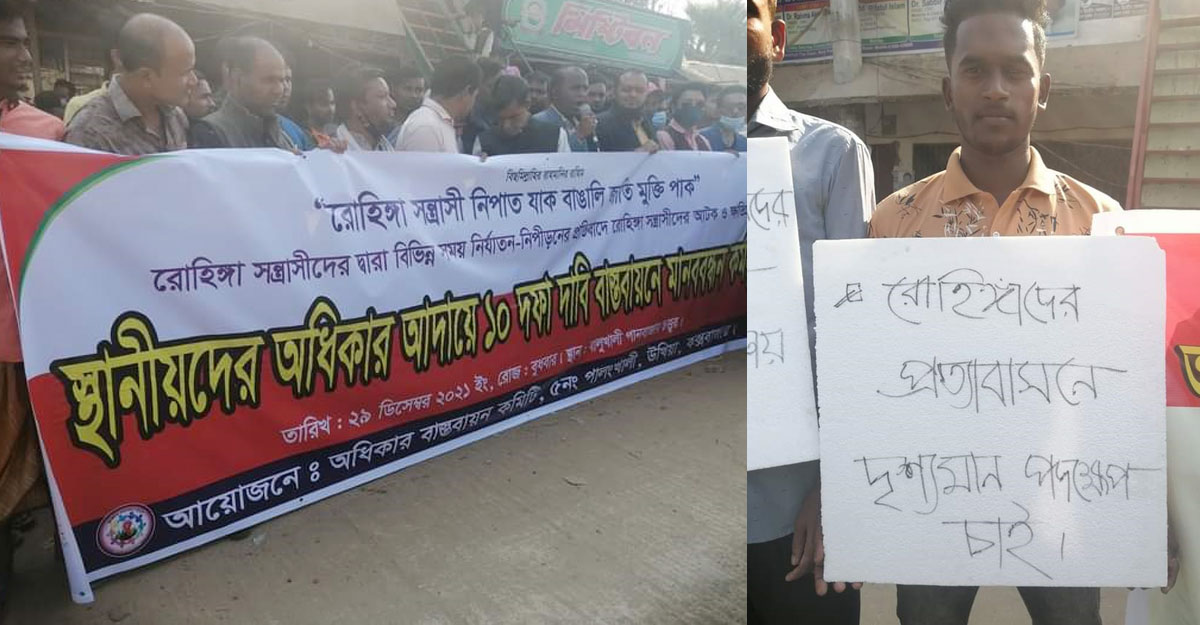 মিষ্টিবন
বিছমিল্লাহির রাহমানির রাহিম
“রোহিঙ্গা সন্ত্রাসী নিপাত যাক বাঙালি জাতি মুক্তি পাক”
রোহিঙ্গা সন্ত্রাসীদের দ্বারা বিভিন্ন সময় নির্যাতন-নিপীড়নের প্রতিবাদে রোহিঙ্গা সন্ত্রাসীদের আটক ও
স্থানীয়দের অধিকার আদায়ে ১০ দফা দাবি বাস্তবায়নে মানববন্ধন
তারিখ : ২৯ ডিসেম্বর ২০২১ ইং, রোজ : বুধবার। স্থান : বালুখালী পানবাজার চত্ত্বর।
আয়োজনে : অধিকার বাস্তবায়ন কমিটি, ৫নং পালংখালী, উখিয়া, কক্সবাজার।
রোহিঙ্গাদের
প্রত্যাবাসনে
দৃশ্যমান পদক্ষেপ
চাই।